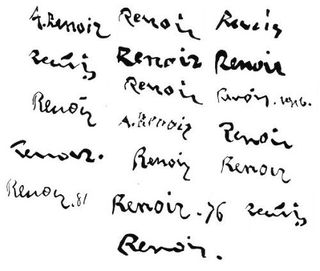 A. Renoir Renoir Renoir
Renoir Renoir Renoir
Renoir
Renoir Renoir. 1916.
A. Renoir Renoir
Renoir. Renoir Renoir
Renoir. 81 Renoir. 76 Renoir
Renoir.